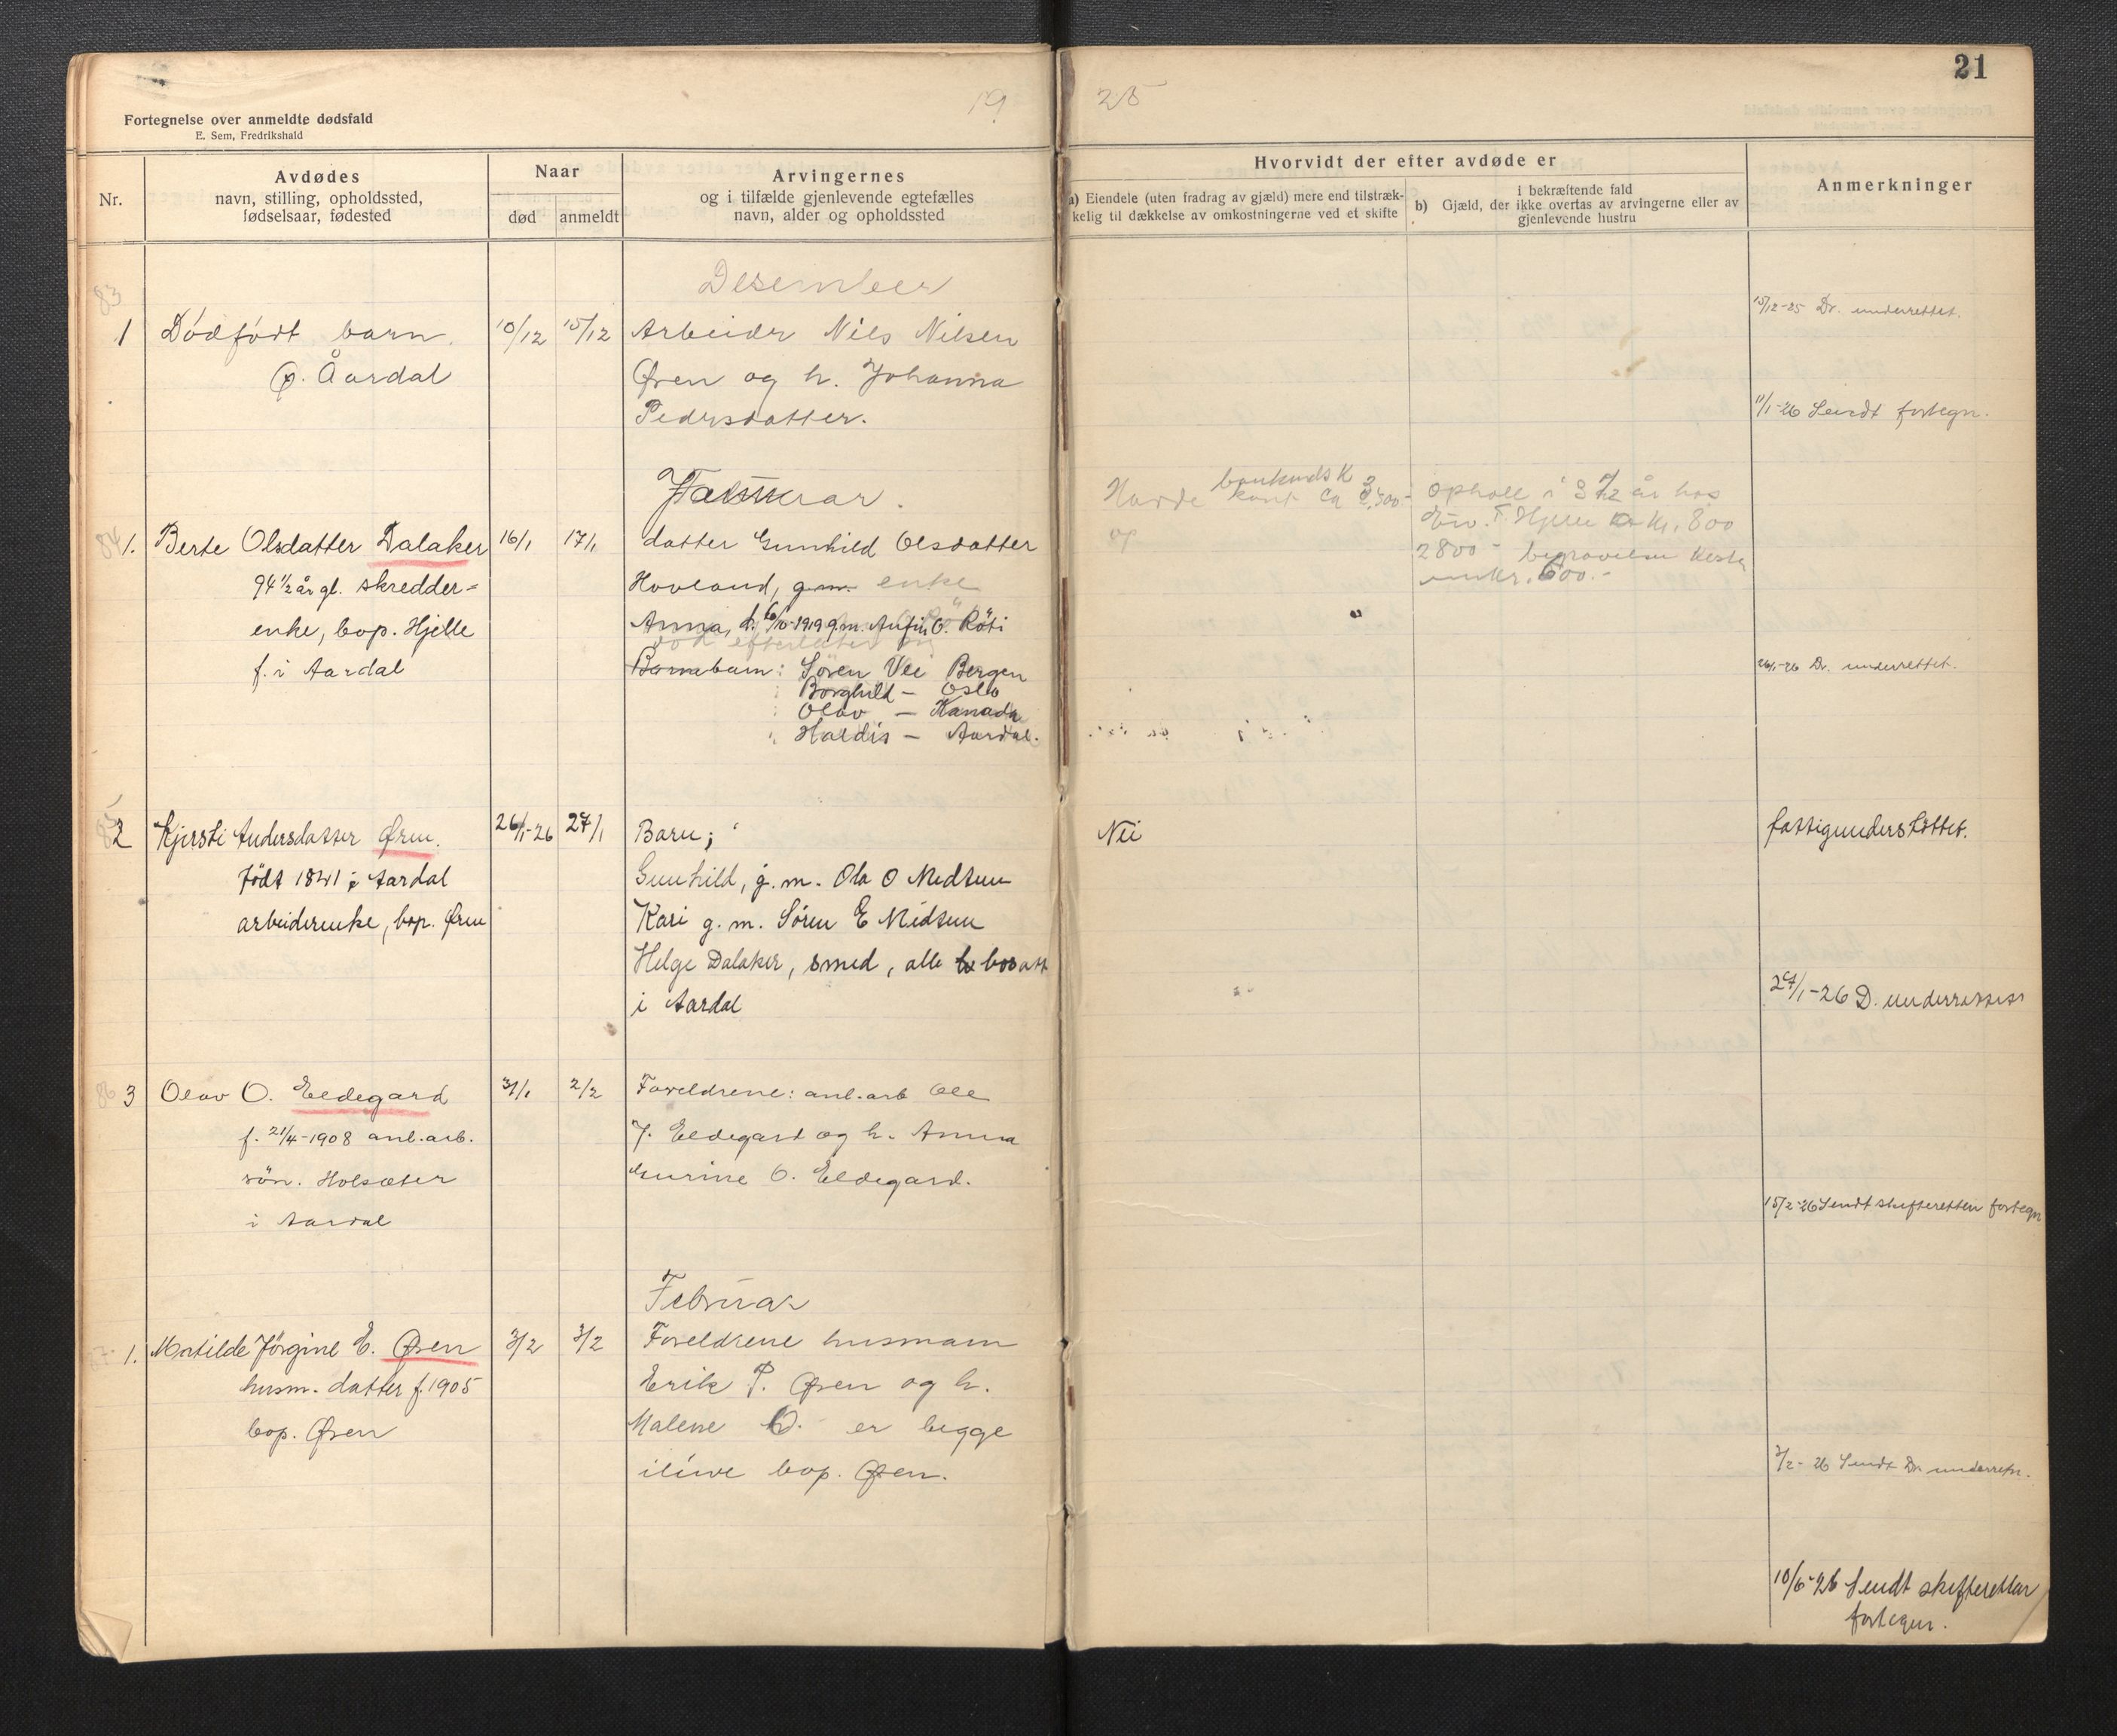 21
19
25
Fortegnelse over anmeldte dødsfald
E. Sem, Fredrikshald
Nr.
Avdødes
navn, stilling, opholdssted,
fødselsaar, fødested
Naar
død
anmeldt
Arvingernes
og i tilfælde gjenlevende egtefælles
navn, alder og opholdssted
Hvorvidt der efter avdøde er
a) Eiendele (uten fradrag av gjæld) mere end tilstræk-
kelig til dækkelse av omkostningerne ved et skifte
i bekræftende fald
b) Gjæld, der ikke overtas av arvingerne eller av
gjenlevende hustru
Anmerkninger
Desember
83
1 Dødfødt barn. 10/12 15/12 Arbeidr Nils Nilsen
Ø. Åardal Øren og h. Johanna
Pedrsdatter.
15/12-25 Dr. underrettet.
11/1-26 Sendt fortegn.
84 1. Berte Olsdatter Dalaker 16/1 17/1 datter Gunhild Olsdatter
94 1/2 år gl. skredder- Hovland, g.m. enke
enke, bop. Hjelle Anna, d. 6/10-1919 g.m. O. Röti
f. i Aardal Barnebarn: Søren Vee Bergen
Borghild - Oslo
Olav - Kanada
Haldis - Aardal.
Havde bankinds K
ca
ophold i 3 1/2 år hos
Hjelle Kr. 800
2800 - begravelse
600.-
26/1-26 Dr. underrettet.
2 Kjersti Andersdatter Øren. 26/1-26 27/1 Barn;
født 1841 i Aardal Gunhild, g.m. Ola O Midtun
arbeiderenke, bop. Øren Kari g.m. Søren E Midtun
Helge Dalaker, smed, alle bosatt
i Aardal
Nei
fattigunderstöttet.
27/1-26 D. underrettet
86 3 Olav O. Eldegard 31/1 2/2 Foreldrene: anl.arb Ole
f. 21/4-1908 anl.arb. J. Eldegard og h. Anna
sön. Holsæter Gurine O. Eldegard.
i Aardal
15/2-26 Sendt skifteretten fortegn
Februar
1. Matilde Jörgine E. Øren 3/2 3/2 Foreldrene husmann
husm. datter f. 1905 Erik P. Øren og h.
bop. Øren Malene O. er begge
ilive bop. Øren.
3/2-26 Sendt Dr. underretn.
10/6-26 Sendt skifteretten
fortegn.